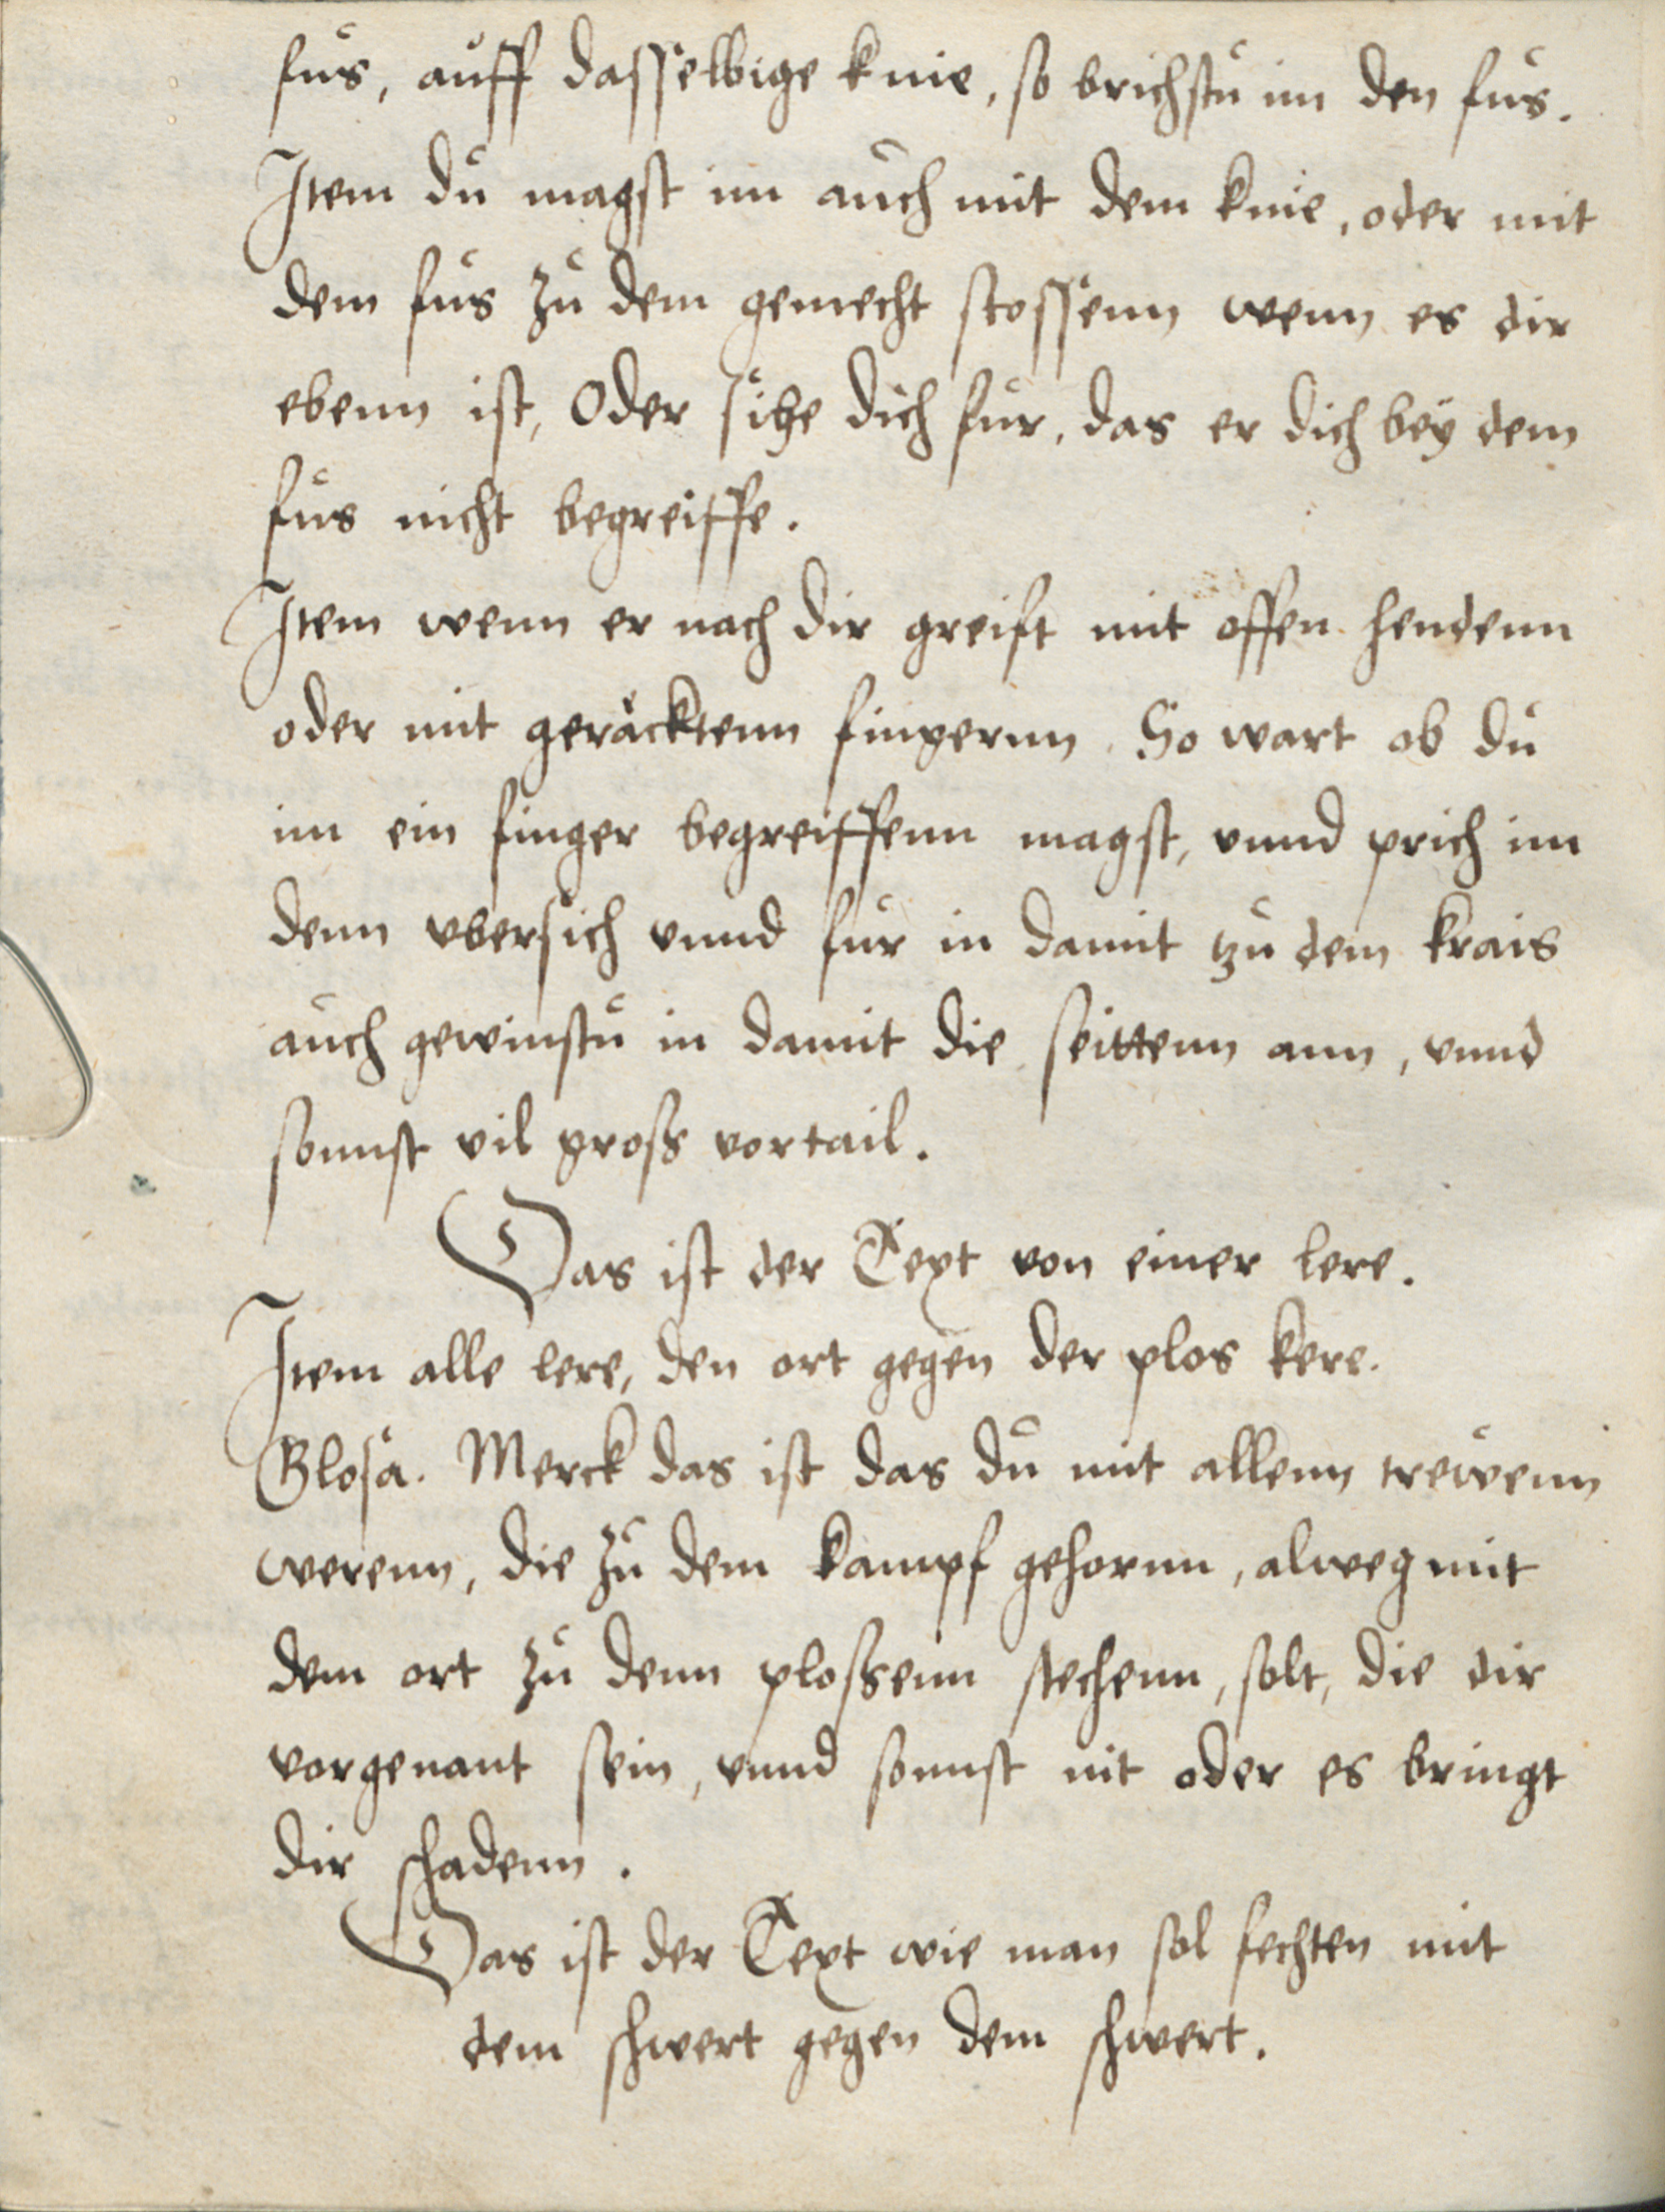 fus, auff dasselbige knie, so brichstu im den fus.
Item du magst im auch mit dem knie, oder mit
dem fus zu dem gemecht stossenn wenn es dir
ebenn ist, Oder sihe dich fur, das er dich bey dem
fus nicht begreiffe.
Item wenn er nach dir greift mit offen hendenn
oder mit geräcktenn fingernn. So wart ob du
im ein finger begreiffenn magst, vnnd prich im
denn vbersich vnnd fur in damit tzu dem krais
auch gewinstu in damit die seittenn ann, vnnd
sonnst vil gross vortail.
Das ist der Text von einer lere.
Item alle lere, den ort gegen der plos kere.
Glosa. Merck das ist das du mit allenn trewenn
werenn, die zu dem kampf gehornn, alweg mit
dem ort zu denn plossenn stechenn, solt, die dir
vorgenant sein, vnnd sonnst nit oder es bringt
dir schadenn.
Das ist der Text wie man sol fechten mit
dem schwert gegen dem schwert.